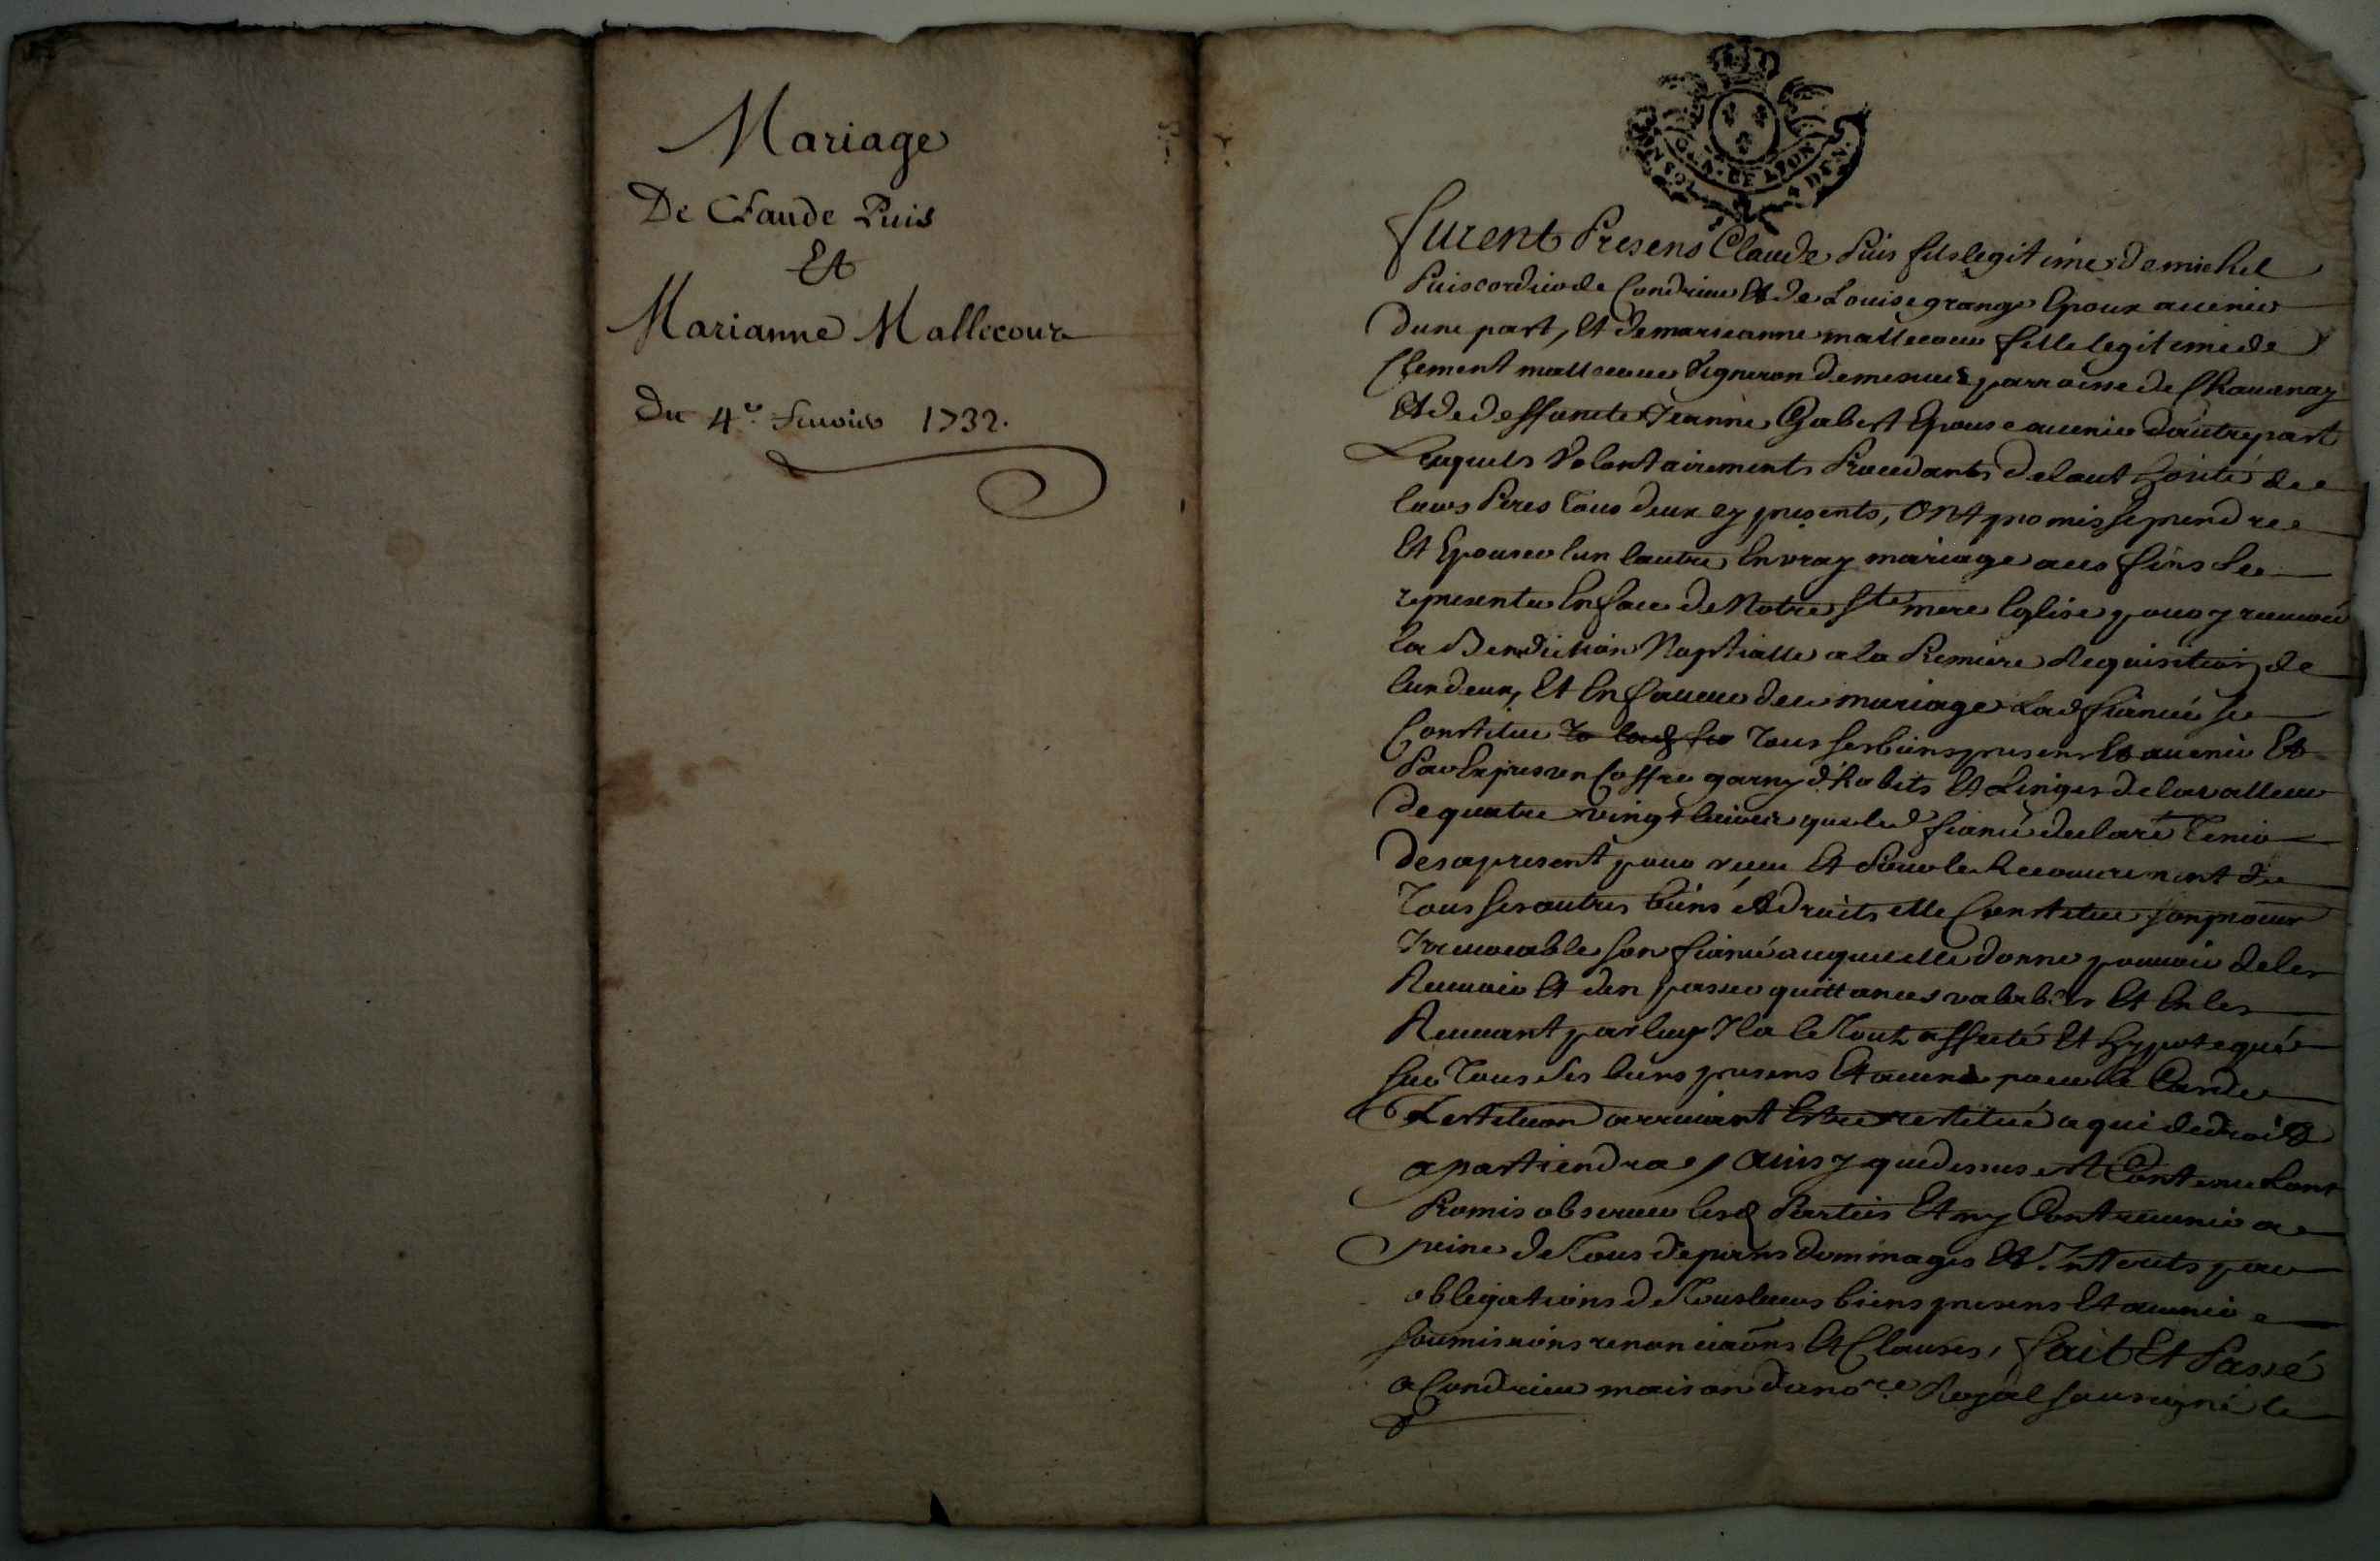 Mariage
De Claude Puis
Et
Marianne Mallecour
Du 4e. fevrier 1732.
GEN. DE LYON
UN SOL 4 DEN.
furent Presens Claude Puis fils legitime de michel
Puis cordier de Condrieu Et de Louise grange Epoux avenir
dune part, Et demarieanne mallecour fille legitime de
Clement mallecour Vigneron de parroisse de Chavanay
Et de deffuncte Jeanne Gabert Epouse avenir dautre part
Lesquels Volontairements Procedants de lauthorité de
leurs Peres tous deux cy presents, Ont promis se prendre
Et Epouser lun lautre En vray mariage aux fins se
representer En face de Notre Ste mere Eglise pour y recevoir
la Benediction Nuptialle a la Premiere Requisition de
lun deux, Et En faveur de ce mariage Lad fiancée se
Constitue Tous ses biens presens Et avenir Et
Par Expres un Coffre garny d'habits Et Linges de la valleur
de quatre vingt livres que led fiancé declare tenir
des apresent pour reçu Et Pour le Recouvrement de
Tous ses autres biens et droits elle Constitue son procur
Irrevocable son fiancé auquel elle donne pouvoir de les
Recevoir Et den passer quittances valables Et En les
Recevant par luy Il a le Tout affecté Et hypotequé
sur Tous ses biens presens Et avenir pour le Cas de
Restitution arrivant Estre restitué a qui de droit
apartiendra, Ainsy que dessus est Contenu Lont
Promis observer lesd Parties Et ny Contrevenir a
peine de Tous depens dommages Et Interests par
obligations de Tous leurs biens presens Et avenir
soumissions renonciaõns Et Clauses, fait Et Passé
a Condrieu maison du nore Royal soussigné le